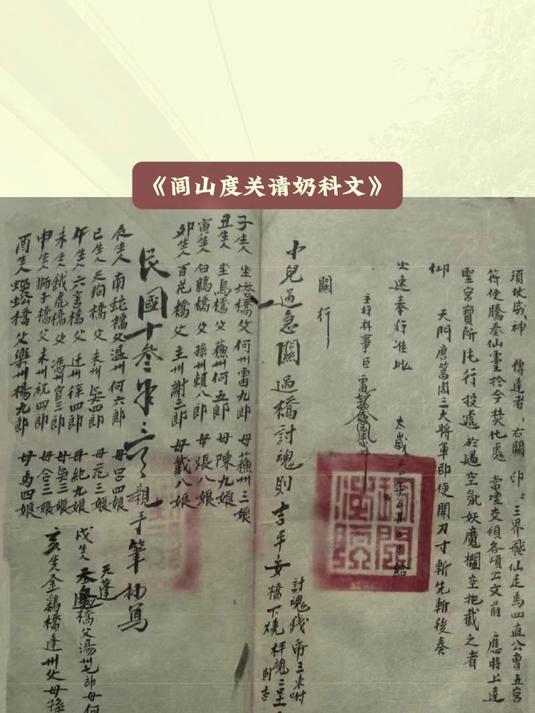 《闾山度关请奶科文》
須伏威神 傳達者 右關 印 三界飛仙走馬四直公曹五宮
符使騰奏仙靈於今焚化處 當壇交領各項公文前 應時上達
聖宮寶所託行投遞於遇空氣妖魔攔空把截之者
仰 天門唐葛周三大將軍即便開刀寸斬先斬後奏
火速奉行准此 太歲
主行科事臣雷
關行
小兒過急關過橋討魂則吉平安
討魂錢
橋下燒
子生人 坐塔橋父何州雷九郎 母蘇州三娘
丑生人 坐馬橋父蘇州何五郎 母陳九娘
寅生人 白鶴橋父 孫州賴八郎 母張八娘
卯生人 百花橋父 主州謝三郎 母戴八娘
民國十叁年 親手筆抄寫
辰生人 南蛇橋父溫州何六郎 母呂四娘
巳生人 天狗橋父 來州吳四郎 母范三娘
午生人 六害橋父 汪州徐四郎 母鮑九娘
未生人 餓虎橋父 馮官三郎 母吳三娘
申生人 獅子橋父 來州祝四郎 母念三娘
酉生人 橋父 樂州楊九郎 母馬四娘
戌生人 天蓬橋父湯州七郎 母何
亥生人 金鷄橋逢州父母孫